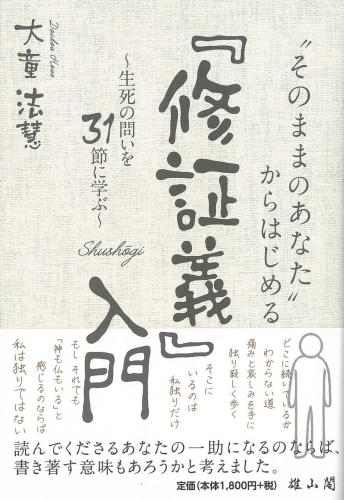 “そのままのあなた”
からはじめる
『修証義』入門
Shushōgi
～生死の問いを
31節に学ぶ～
Daidou Houe
大童法慧
どこに続いているか
わからない道
痛みと哀しみを手に
独り寂しく歩く
そこに
いるのは
私独りだけ
もし それでも
「神も仏もいる」と
感じるのならば
私は独りではない
読んでくださるあなたの一助になるのならば、
書き著す意味もあろうかと考えました。
定価(本体1,800円+税)
雄山閣